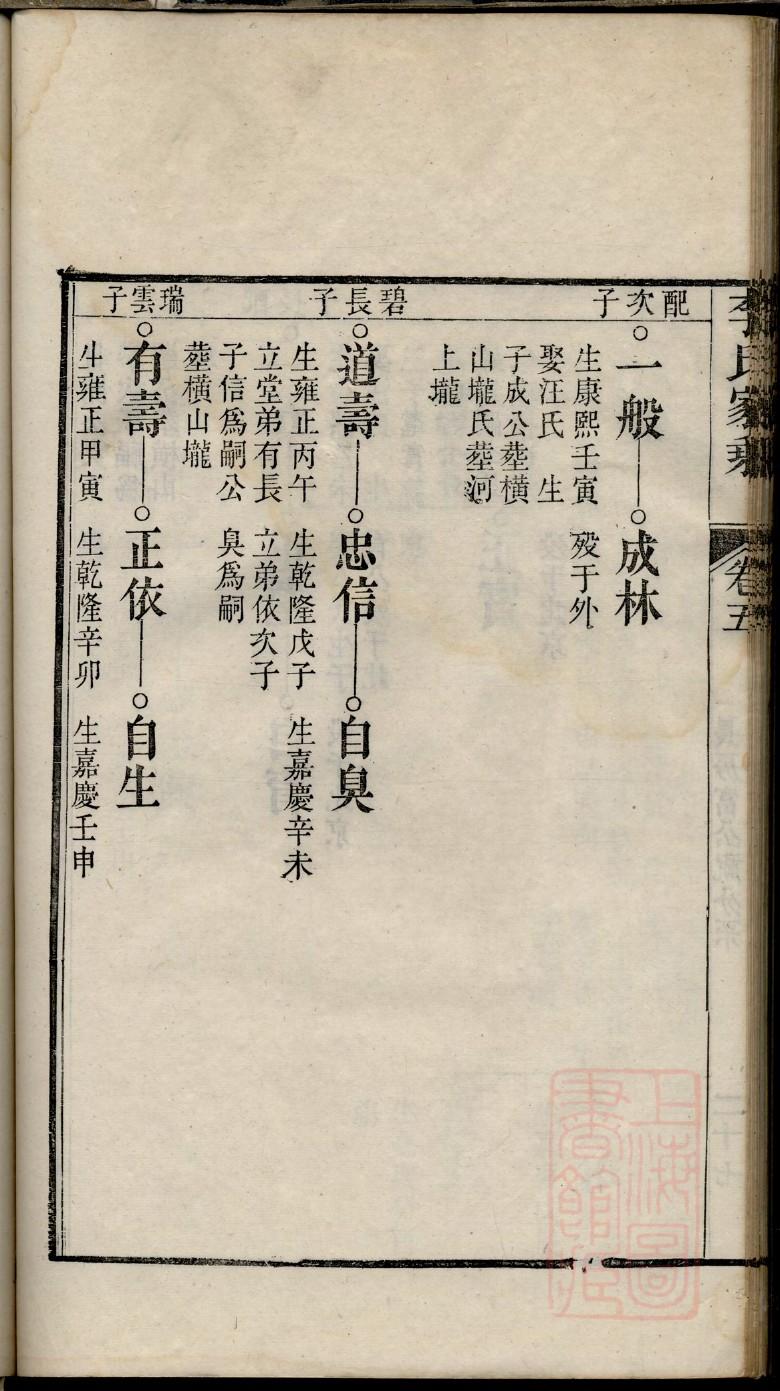 李氏家乘
卷五
二十七
配次子
一般
成林
生康熙壬寅
歿于外
娶汪氏 生
子成公塟橫
山壠氏塟河
上壠
碧長子
道壽
忠信
自臭
生雍正丙午
生乾隆戊子
生嘉慶辛未
立堂弟有長
立弟依次子
子信爲嗣公
臭爲嗣
塟橫山壠
瑞雲子
有壽
正依
自生
生雍正甲寅
生乾隆辛卯
生嘉慶壬申
上海圖
書館藏